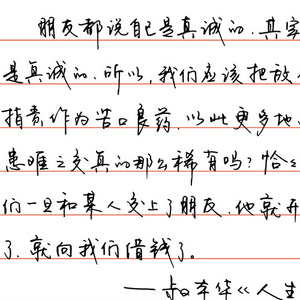 朋友都说自己是真诚的,其实
是真诚的.所以,我们应该把放
指责作为苦口良药.以此更多地
患难之交真的那么稀有吗?恰
们一旦和某人交上了朋友.他就开
了.就向我们借钱了。
——叔本华《人生